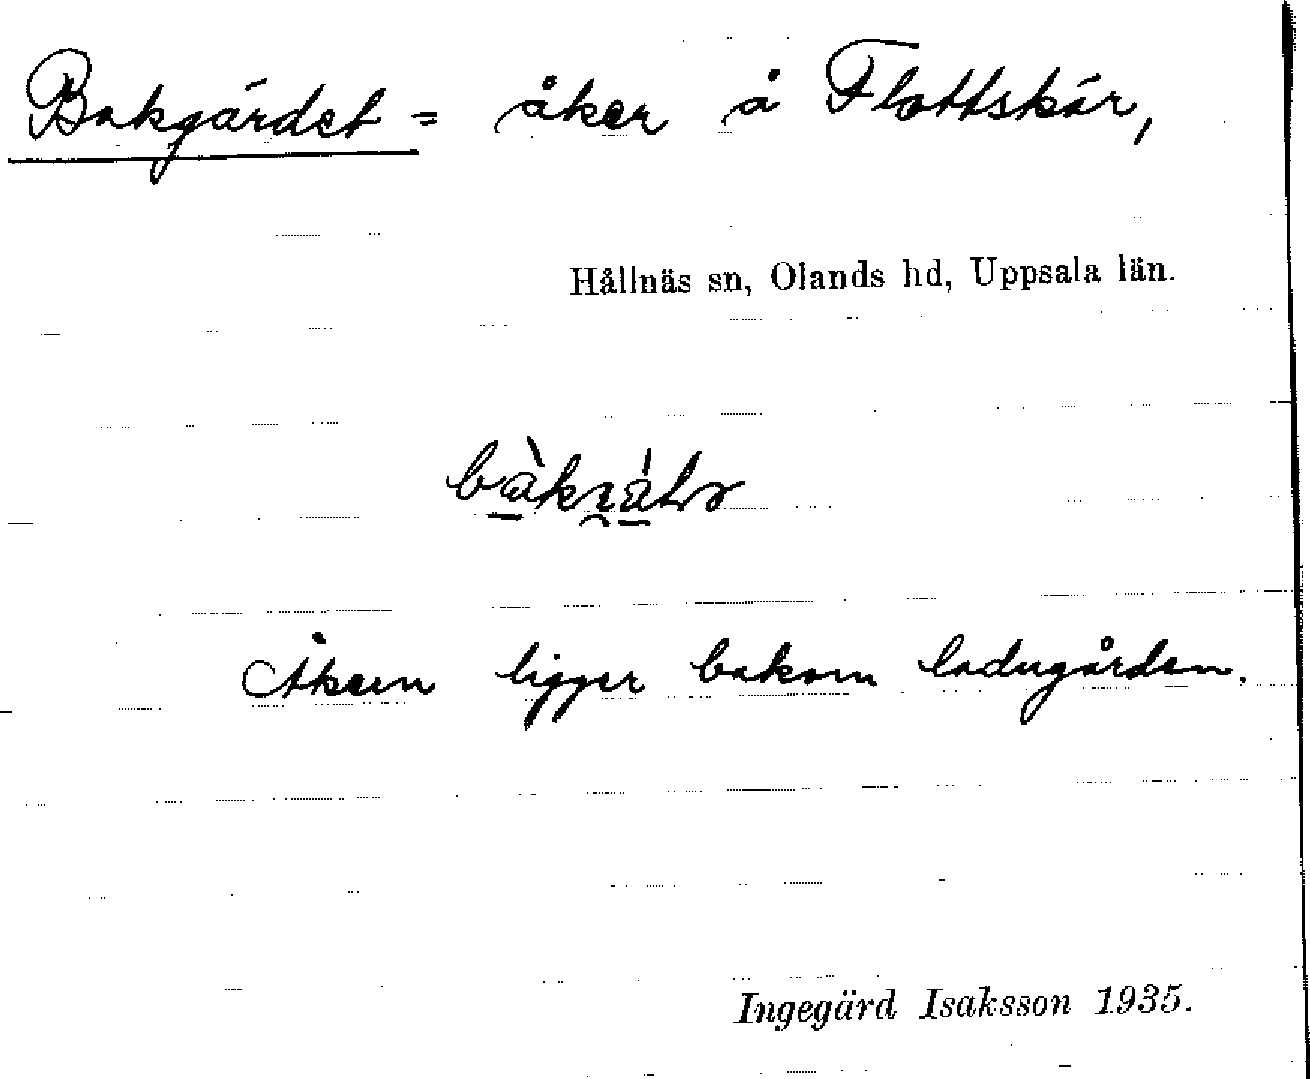 Bakgärdet = åker å Flottskär,
Hållnäs sn, Olands hd, Uppsala län.
Åkern ligger bakom ladugården.
Ingegärd Isaksson 1935.